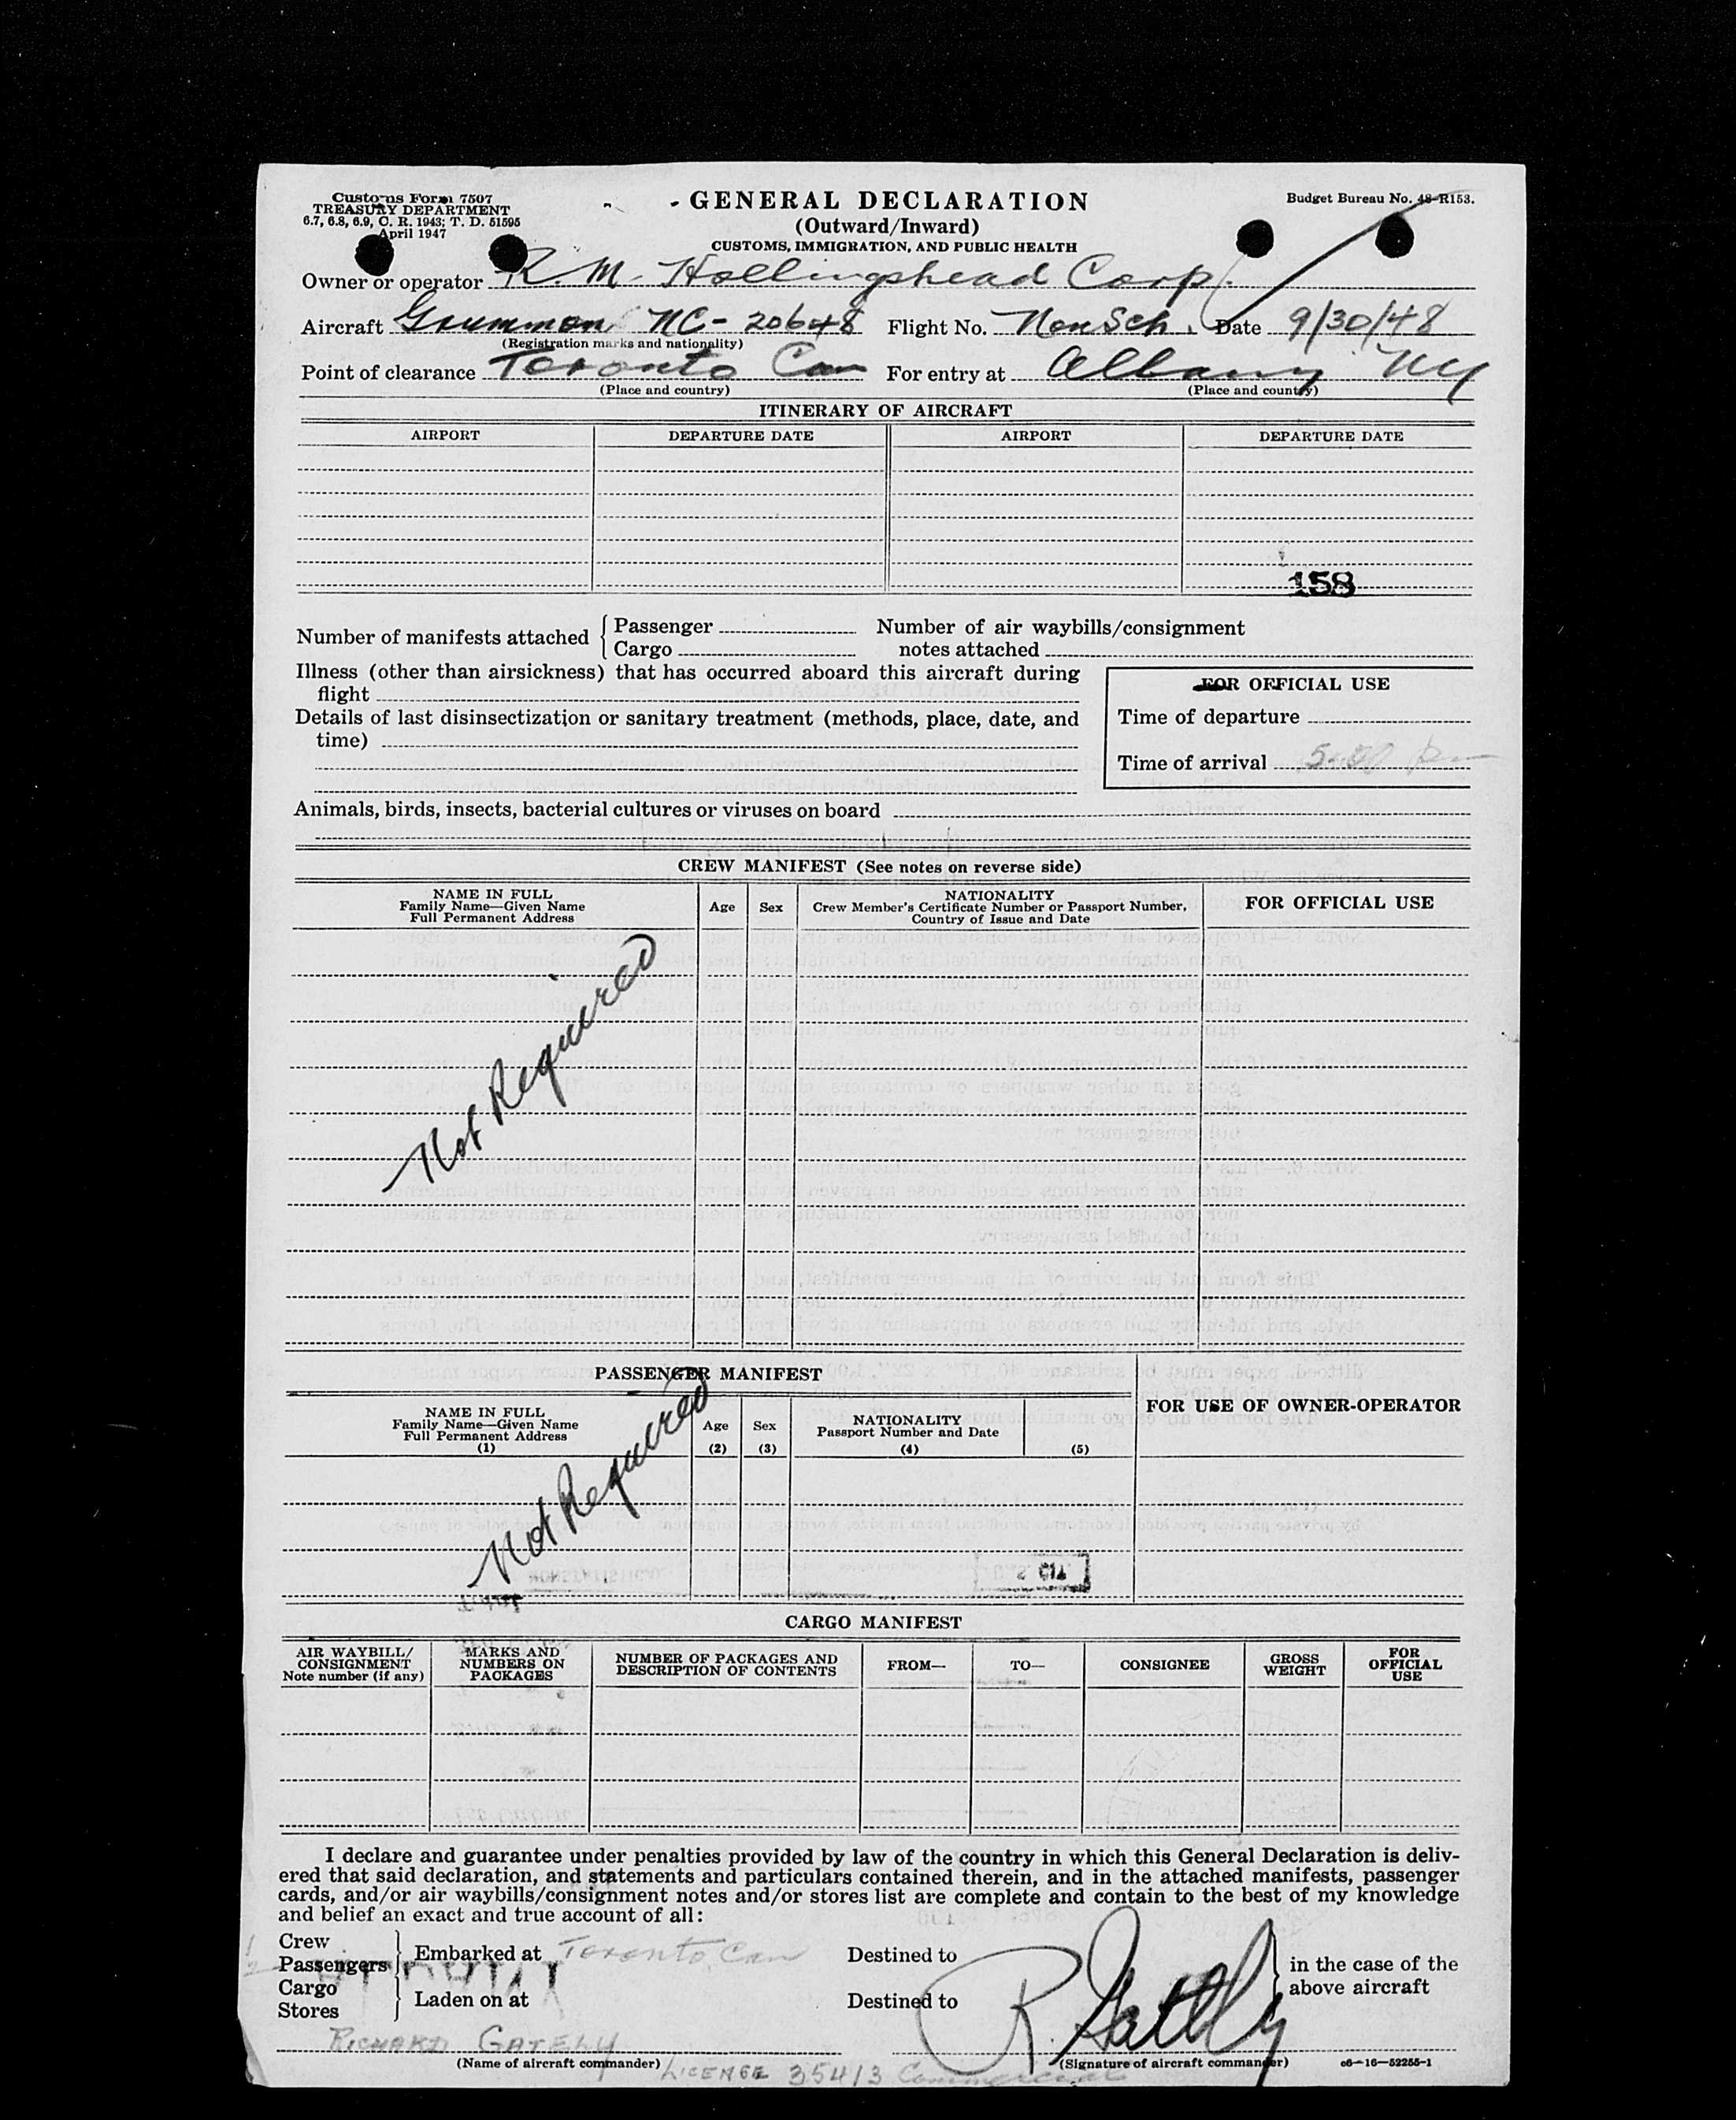 Customs Form 7507
TREASURY DEPARTMENT
6.7, 6.8, 6.9, C. R. 1943; T. D. 51595
April 1947
GENERAL DECLARATION
(Outward/Inward)
CUSTOMS, IMMIGRATION, AND PUBLIC HEALTH
Budget Bureau No. 48-R153.
Owner or operator R. M. Hollingshead Corp.
Aircraft Grumman NC-20648 Flight No. Non Sch. Date 9/30/48
(Registration marks and nationality)
Point of clearance Toronto Can For entry at Albany NY
(Place and country) (Place and country)
ITINERARY OF AIRCRAFT
AIRPORT DEPARTURE DATE AIRPORT DEPARTURE DATE
158
Number of manifests attached { Passenger Number of air waybills/consignment
Cargo notes attached
Illness (other than airsickness) that has occurred aboard this aircraft during
flight
FOR OFFICIAL USE
Details of last disinsectization or sanitary treatment (methods, place, date, and
time)
Time of departure
Time of arrival
Animals, birds, insects, bacterial cultures or viruses on board
CREW MANIFEST (See notes on reverse side)
NAME IN FULL
Family Name—Given Name
Full Permanent Address
Age
Sex
NATIONALITY
Crew Member's Certificate Number or Passport Number,
Country of Issue and Date
FOR OFFICIAL USE
Not Required
PASSENGER MANIFEST
NAME IN FULL
Family Name—Given Name
Full Permanent Address
(1)
Age
(2)
Sex
(3)
NATIONALITY
Passport Number and Date
(4)
(5)
FOR USE OF OWNER-OPERATOR
Not Required
CARGO MANIFEST
AIR WAYBILL/
CONSIGNMENT
Note number (if any)
MARKS AND
NUMBERS ON
PACKAGES
NUMBER OF PACKAGES AND
DESCRIPTION OF CONTENTS
FROM—
TO—
CONSIGNEE
GROSS
WEIGHT
FOR
OFFICIAL
USE
I declare and guarantee under penalties provided by law of the country in which this General Declaration is deliv-
ered that said declaration, and statements and particulars contained therein, and in the attached manifests, passenger
cards, and/or air waybills/consignment notes and/or stores list are complete and contain to the best of my knowledge
and belief an exact and true account of all:
Crew
Passengers
Cargo
Stores
Embarked at Toronto, Can
Laden on at
Destined to
Destined to
in the case of the
above aircraft
RICHARD GATELY
R. Gately
(Name of aircraft commander) (Signature of aircraft commander) c6—16—52255-1
LICENSE 35413 Commercial